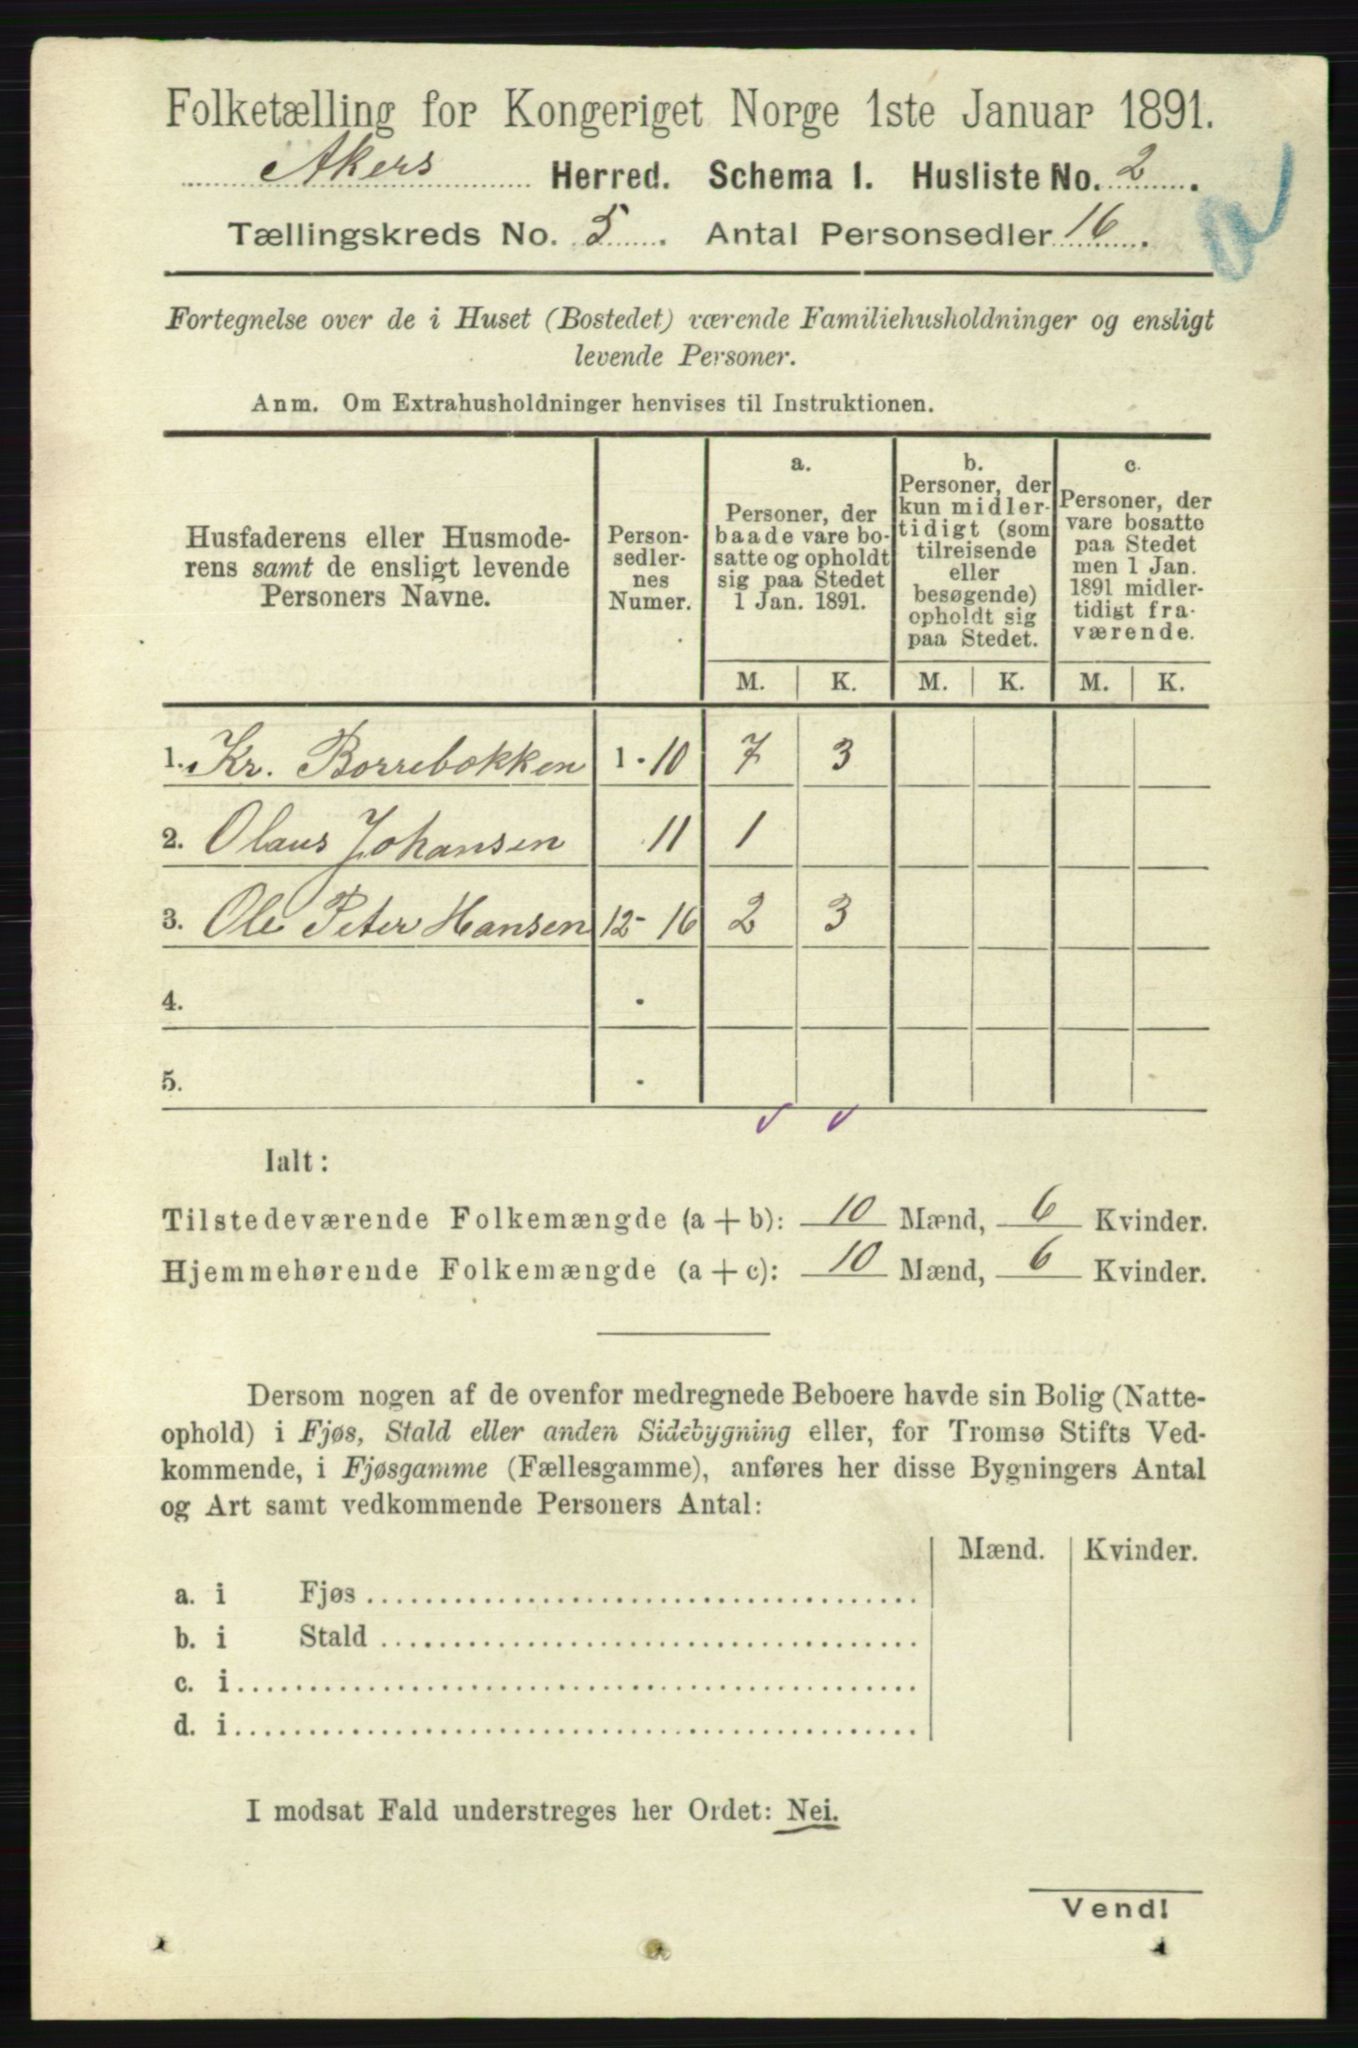 Folketælling for Kongeriget Norge 1ste Januar 1891.
Akers Herred. Schema 1. Husliste No. 2.
Tællingskreds No. 5. Antal Personsedler 16.
Fortegnelse over de i Huset (Bostedet) værende Familiehusholdninger og ensligt
levende Personer.
Anm. Om Extrahusholdninger henvises til Instruktionen.
Husfaderens eller Husmode-
rens samt de ensligt levende
Personers Navne.
Person-
sedler-
nes
Numer.
a.
Personer, der
baade vare bo-
satte og opholdt
sig paa Stedet
1 Jan. 1891.
b.
Personer, der
kun midler-
tidigt (som
tilreisende
eller
besøgende)
opholdt sig
paa Stedet.
c.
Personer, der
vare bosatte
paa Stedet
men 1 Jan.
1891 midler-
tidigt fra-
værende.
M. K. M. K. M. K.
1. Kr. Borrebakken 1 - 10 7 3
2. Olaus Johansen 11 1
3. Ole Peter Hansen 12 - 16 2 3
4.
5.
Ialt:
Tilstedeværende Folkemængde (a + b): 10 Mænd, 6 Kvinder.
Hjemmehørende Folkemængde (a + c): 10 Mænd, 6 Kvinder.
Dersom nogen af de ovenfor medregnede Beboere havde sin Bolig (Natte-
ophold) i Fjøs, Stald eller anden Sidebygning eller, for Tromsø Stifts Ved-
kommende, i Fjøsgamme (Fællesgamme), anføres her disse Bygningers Antal
og Art samt vedkommende Personers Antal:
Mænd. Kvinder.
a. i Fjøs
b. i Stald
c. i
d. i
I modsat Fald understreges her Ordet: Nei.
Vend!